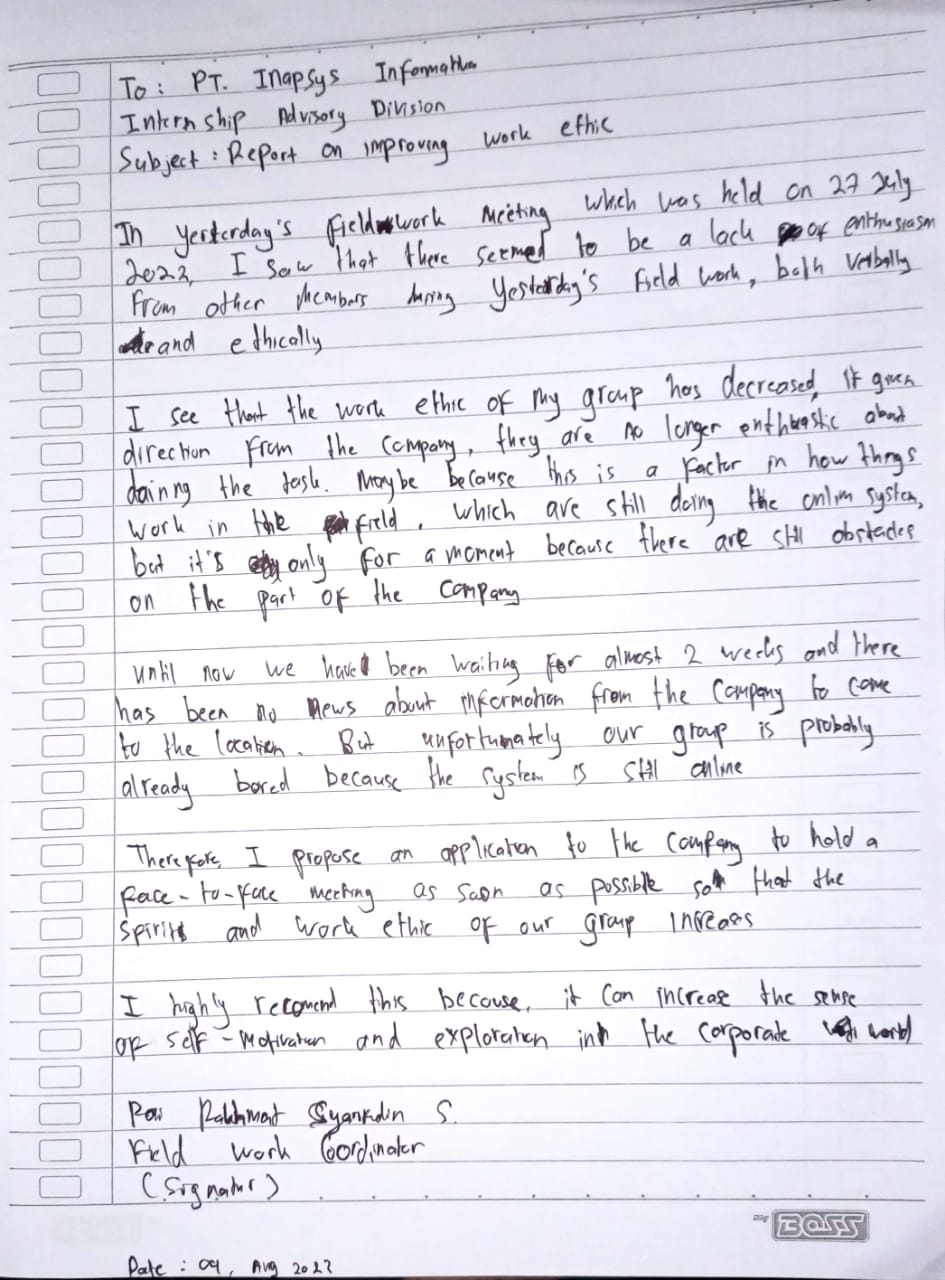 To: PT. Inapsys Informatika
Internship Advisory Division
Subject: Report on improving work ethic
In yesterday's field work meeting which was held on 27 July
2023, I saw that there seemed to be a lack of enthusiasm
from other members during yesterday's field work, both verbally
and ethically
I see that the work ethic of my group has decreased, if given
direction from the company, they are no longer enthuastic about
doinng the task. Maybe because this is a factor in how things
work in the field, which are still doing the onlin system,
but it's only for a moment because there are still obstacles
on the part of the company
until now we have been waiting for almost 2 weeks and there
has been no news about information from the company to come
to the location. But unfortunately our group is probably
already bored because the system is still online
Therefore, I propose an application to the company to hold a
face-to-face meeting as soon as possible so that the
spirit and work ethic of our group increases
I highly recomend this because, it can increase the sense
of self-motivation and exploration in the corporate world
Rakhmat S.
Field work Coordinator
(Signatur)
Big BOSS
Date: 04, Aug 2023